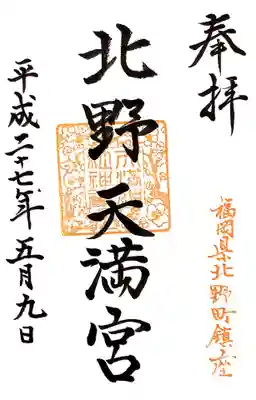 奉拝
福岡県北野町鎮座
北野天満宮
平成二十七年五月九日